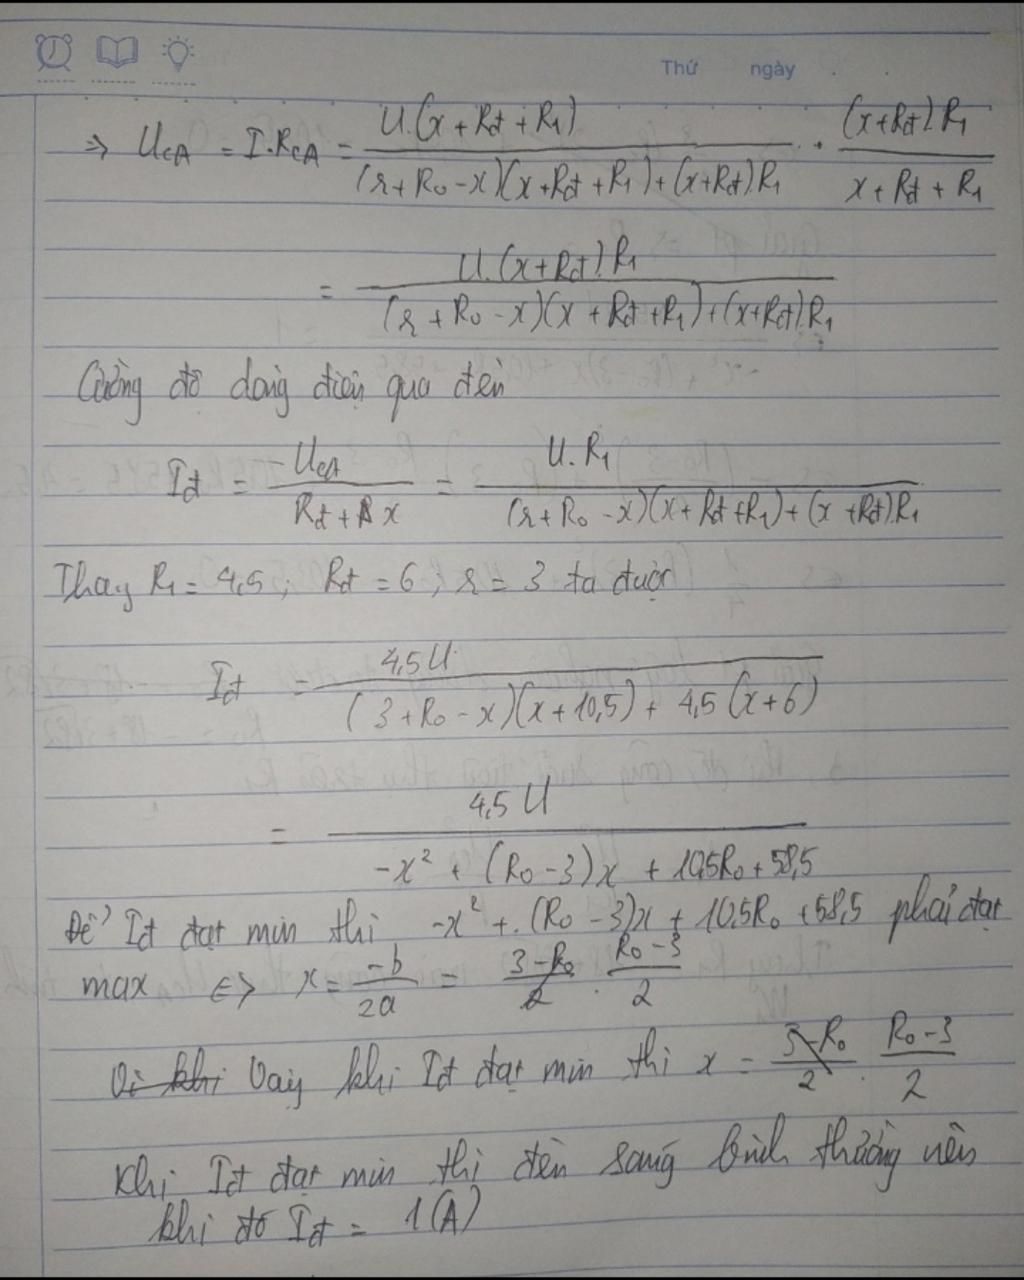 Thứ ngày
=> UCA = I.RCA = U.(x + Rđ + R1) / (r + R0 - x)(x + Rđ + R1) + (x + Rđ).R1 . (x + Rđ).R1 / x + Rđ + R1
= U.(x + Rđ).R1 / (r + R0 - x)(x + Rđ + R1) + (x + Rđ).R1
Cường độ dòng điện qua đèn
Iđ = UCA / Rđ + x = U.R1 / (r + R0 - x)(x + Rđ + R1) + (x + Rđ)R1
Thay R1 = 4,5; Rđ = 6; r = 3 ta được
Iđ = 4,5U / (3 + R0 - x)(x + 10,5) + 4,5(x + 6)
= 4,5 U / -x² + (R0 - 3)x + 10,5R0 + 58,5
Để Iđ đạt min thì -x² + (R0 - 3)x + 10,5R0 + 58,5 phải đạt
max <=> x = -b / 2a = 3 - R0 / 2 . R0 - 3 / 2
Vì khi Vậy khi Iđ đạt min thì x = 3 - R0 / 2 . R0 - 3 / 2
Khi Iđ đạt min thì đèn sáng bình thường nên
khi đó Iđ = 1(A)